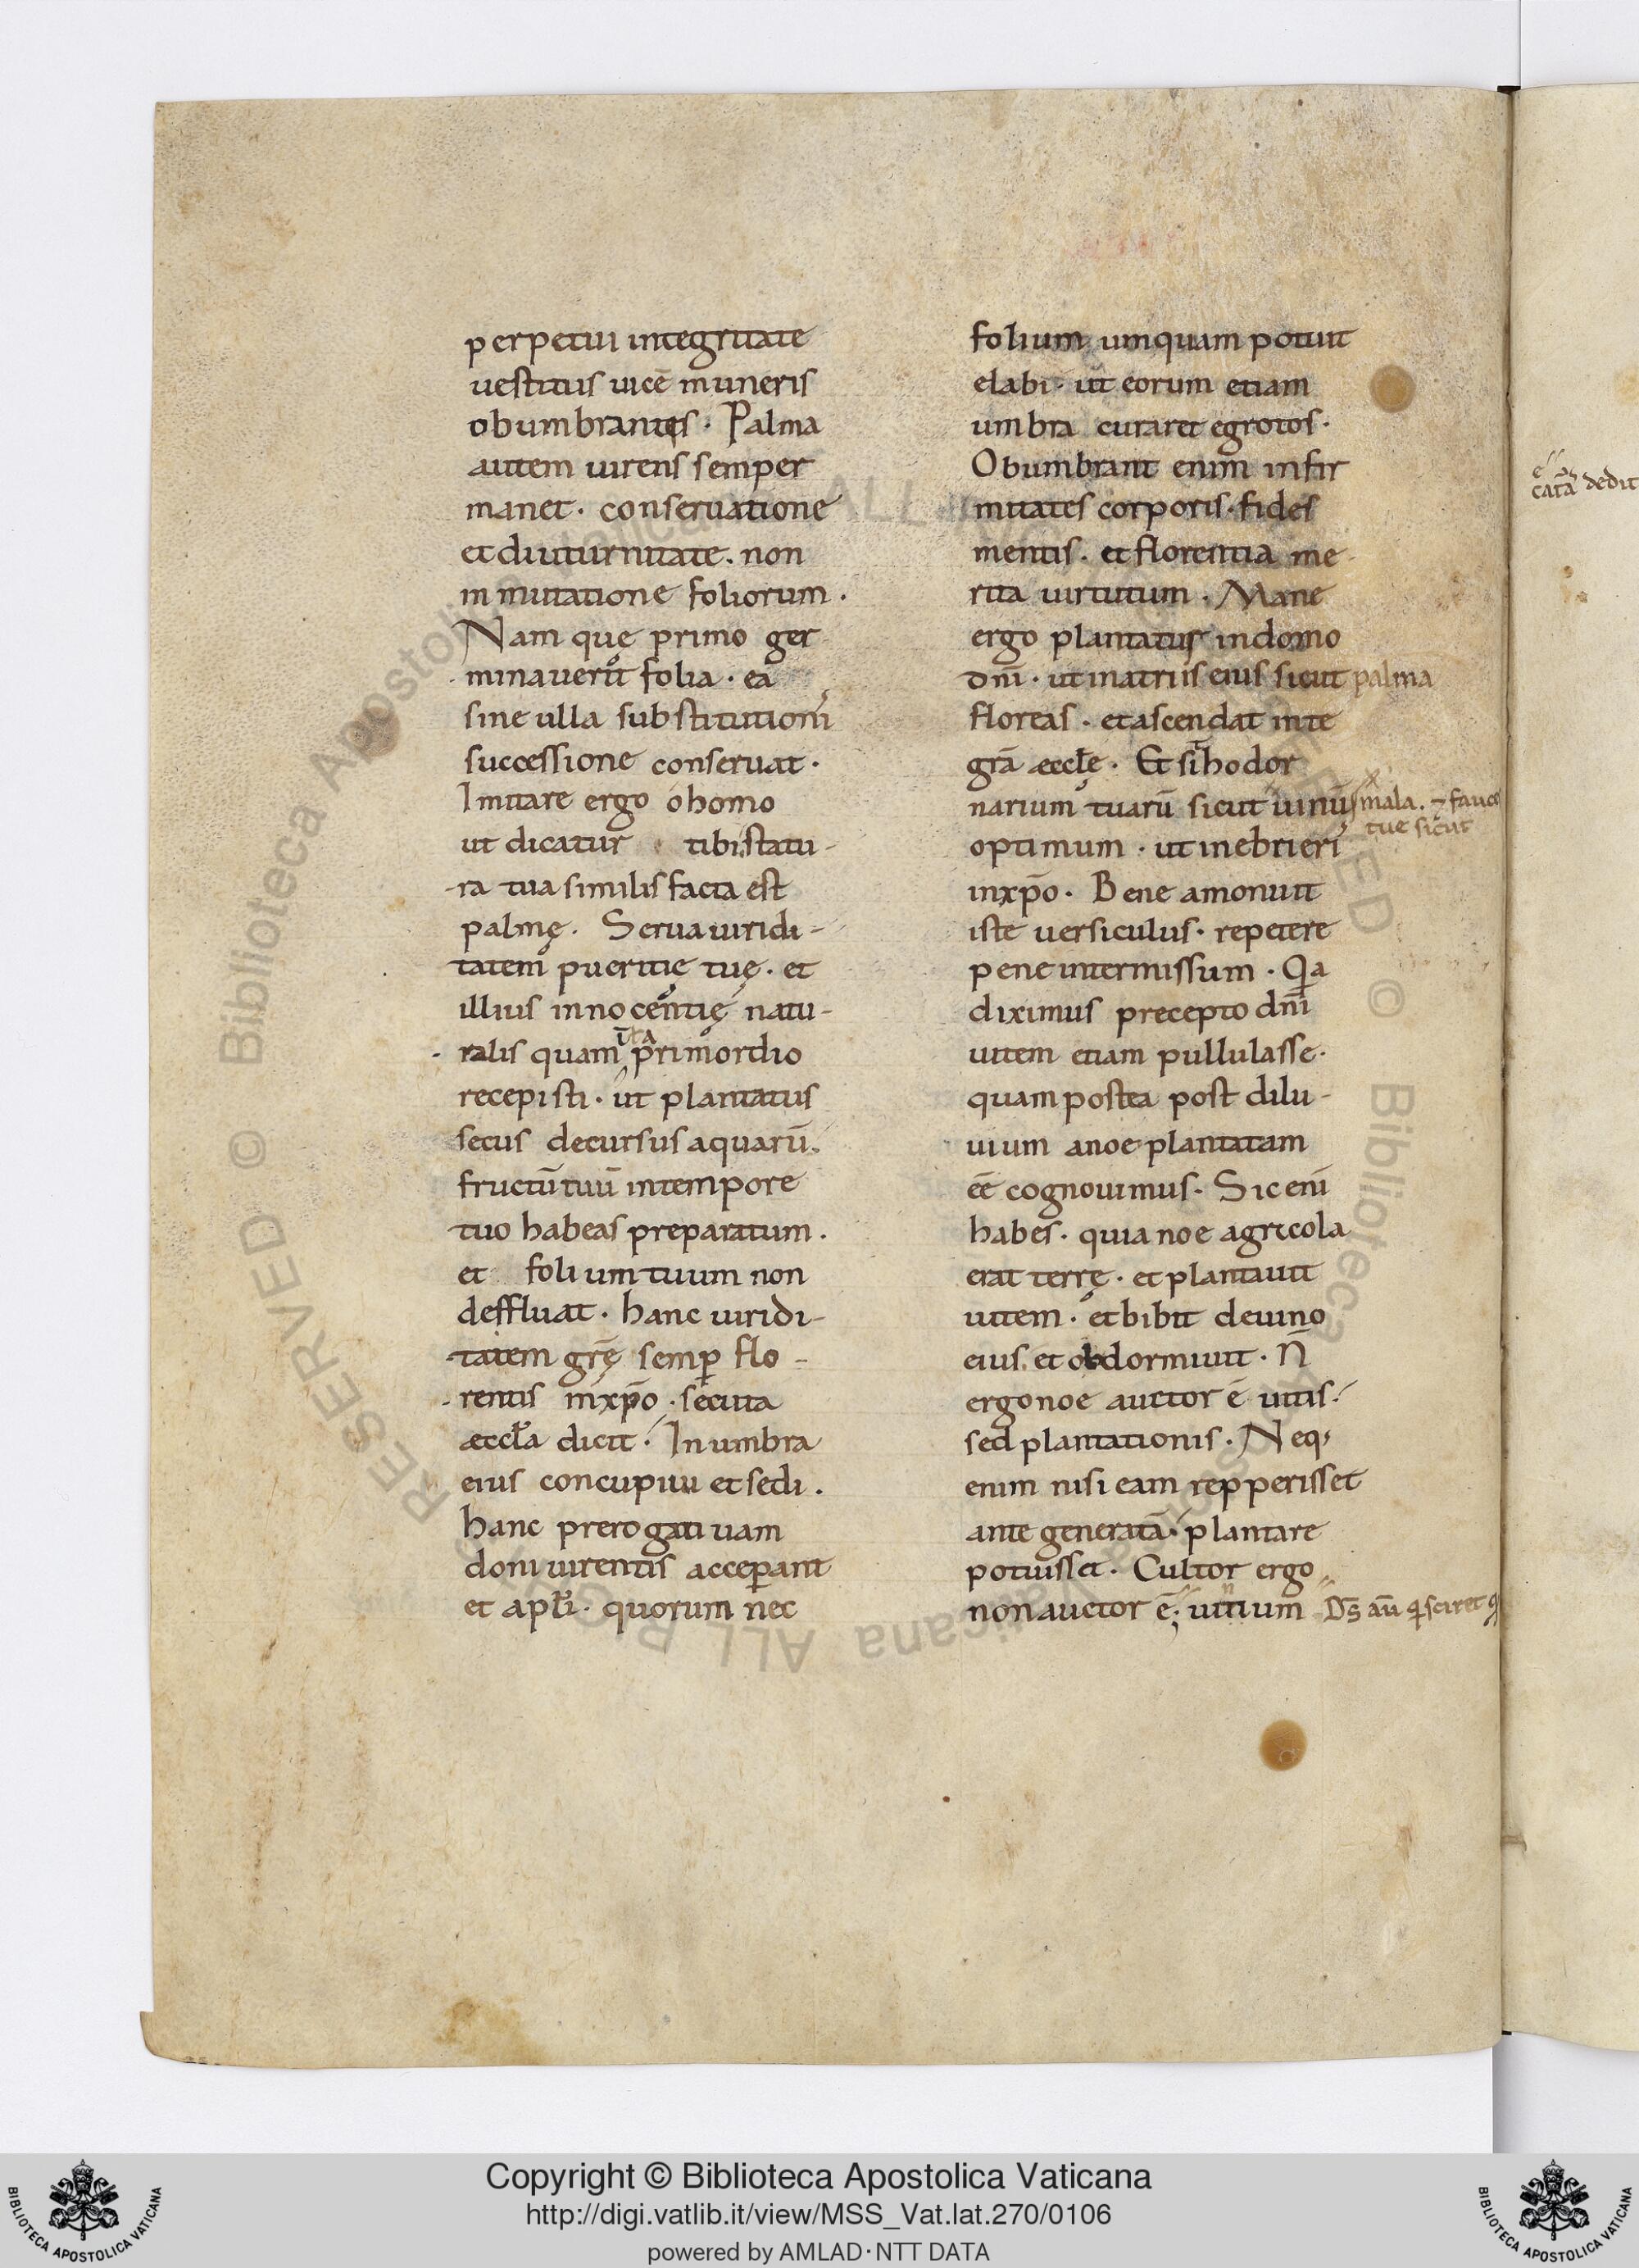 perpetui integritate
uestitus uicē muneris
obumbrantes · Palma
autem uirens semper
manet · conseruatione
et diuturnitate. non
in mutatione foliorum.
Nam quę primo ger
minauerūt folia · ea
sine ulla substitutioni
successione conseruat ·
Imitare ergo ohomo
ut dicatur tibi statu-
-ra tua similis facta est
palmę. Serua uiridi-
tatem pueritię tuę. et
illius innocentię natu-
- ralis quam primordio
recepisti · ut plantatus
secus decursus aquarū.
fructū tuū intempore
tuo habeas preparatum.
et folium tuum non
deffluat · hanc uiridi-
-tatem grę̄ semp̱ flo-
- rentis inxp̄o · secuta
æccl̄a dicit · In umbra
eius concupiui et sedi.
hanc prerogatiuam
doni uirentis acceperant
et apl̄i · quorum nec
folium umquam potuit
elabi · ut eorum etiam
umbra curaret egrotos·
Obumbrant enim infir
mitates corporis · fides
mentis · et florentia me-
rita uirtutum · Mane
ergo plantatus indomo
dn̄i · ut inatriis eius sicut palma
floreas · et ascendat inte
grā æccl̄ę · Et sit hodor
narium tuarū sicut mala. ⁊ fauces
tue sicut
uinū
optimum · ut inebrieri
inxp̄o · Bene amonuit
iste uersiculus · repetere
pene intermissum · Qia
diximus precepto dn̄i
uitem etiam pullulasse·
quam postea post dilu-
uium anoe plantatam
eē cognouimus · Sic eni
habes · quia noe agricola
erat terrę · et plantauit
uitem · et bibit deuino
eius. et obdormiuit · N̄
ergo noe auctor ē uitis·
sed plantationis · Neq;
enim nisi eam repperisset
ante generatā · plantare
potuisset · Cultor ergo
non auctor ē; uitium Ds̄ aū qi sciret
catā dedit
Copyright © Biblioteca Apostolica Vaticana
http://digi.vatlib.it/view/MSS_Vat.lat.270/0106
powered by AMLAD·NTT DATA
BIBLIOTECA APOSTOLICA VATICANA
BIBLIOTECA APOSTOLICA VATICANA